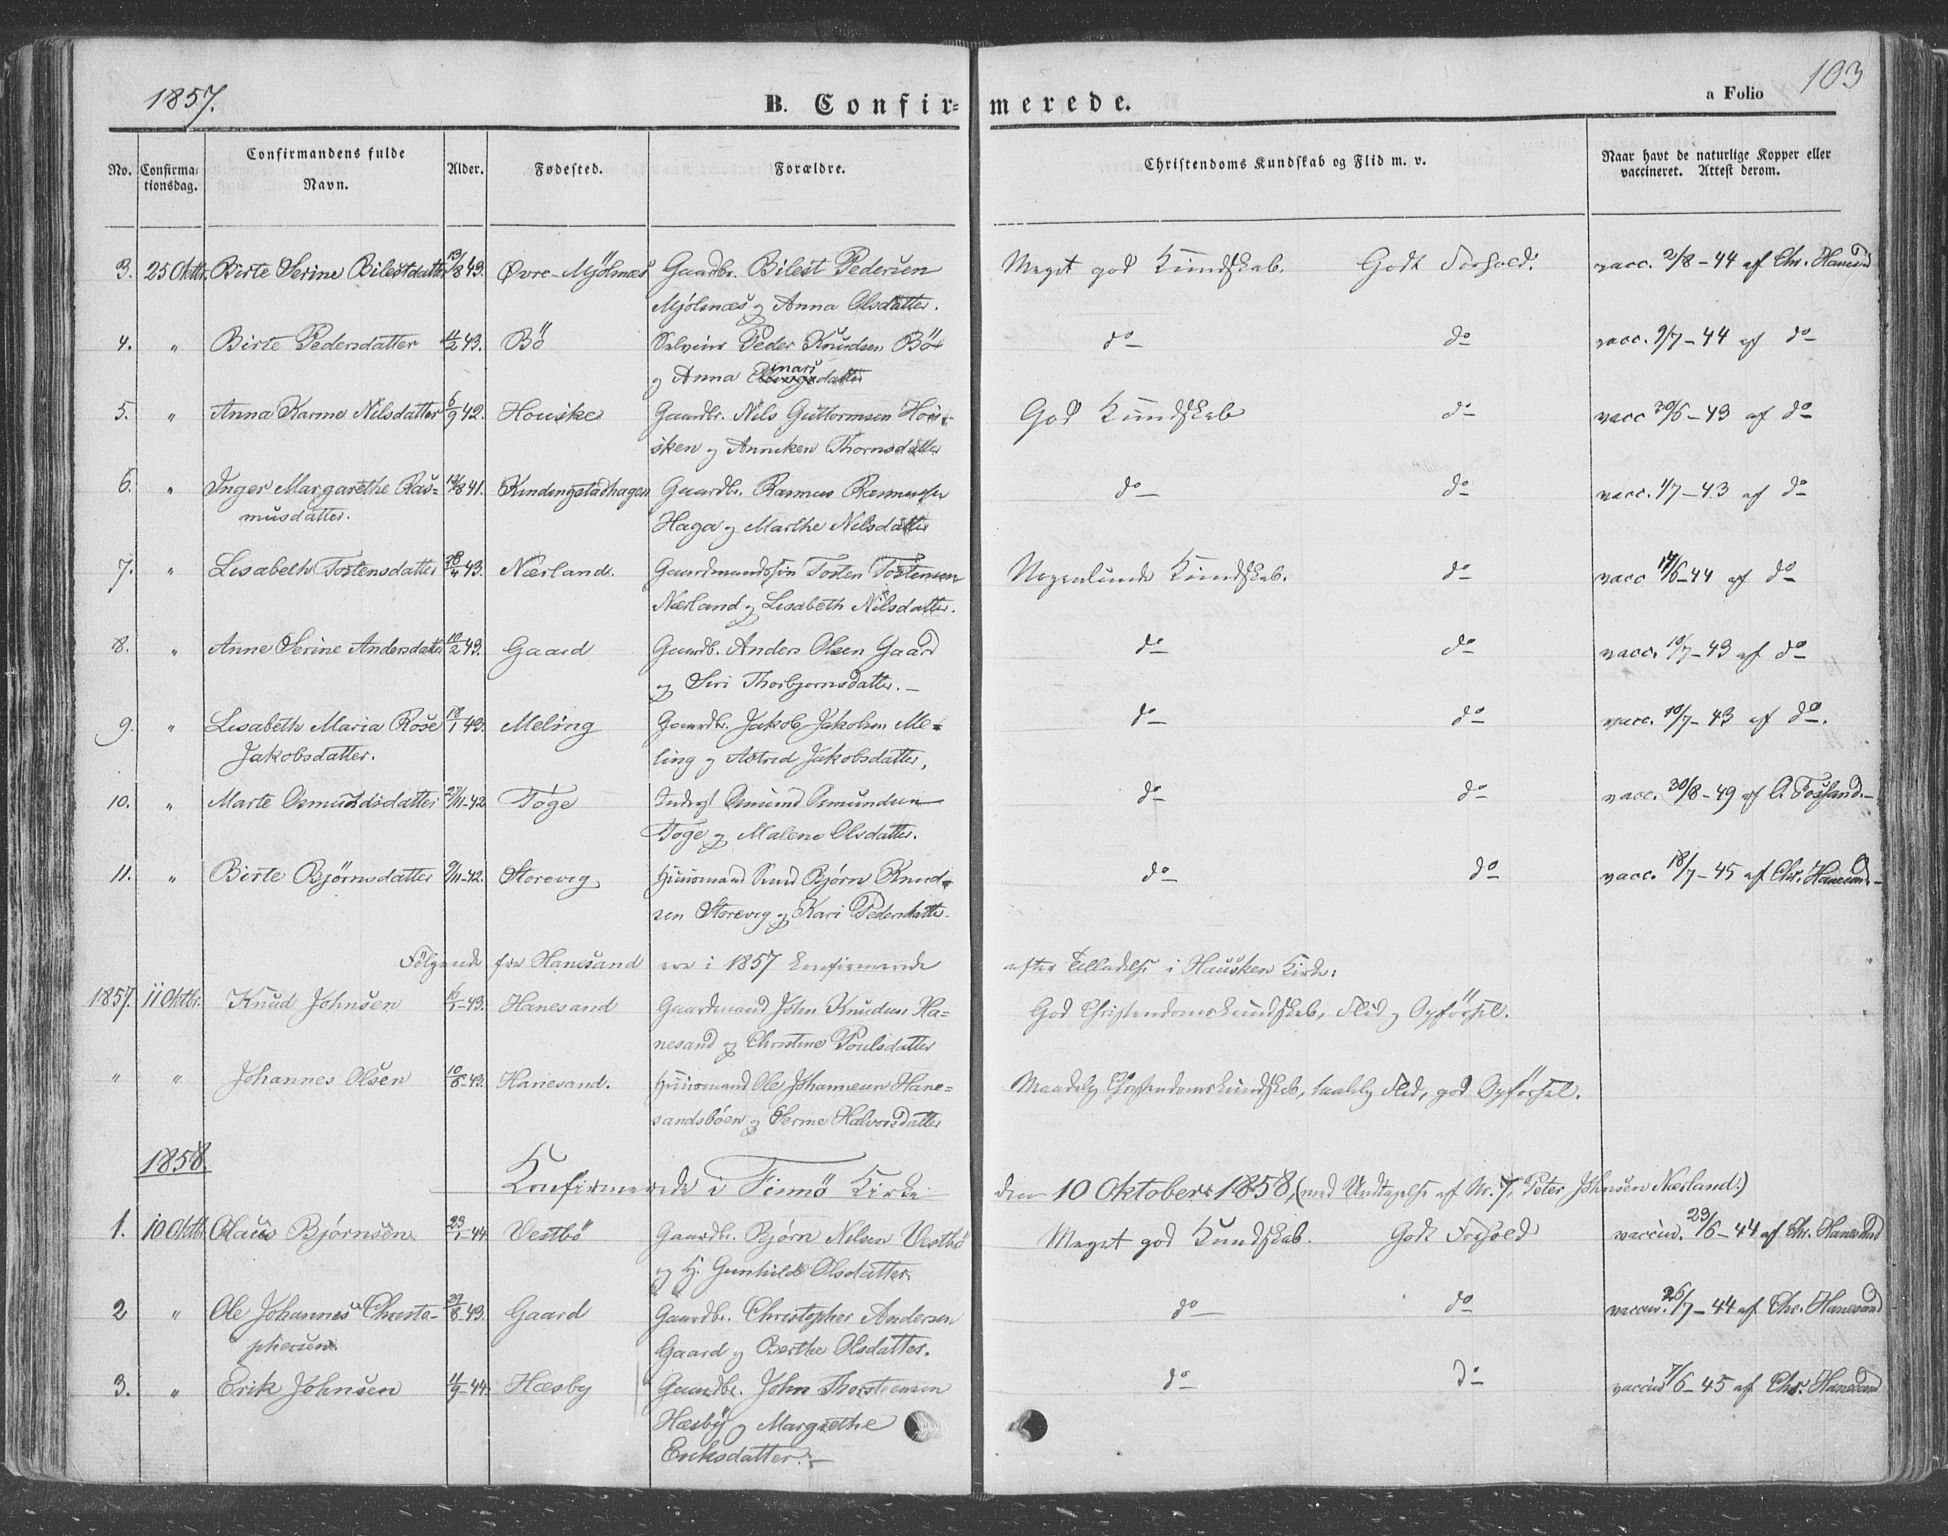 1857.
B. Confirmerede.
a Folio 103
No. Confirmationsdag. Confirmandens fulde Navn. Alder. Fødested. Forældre. Christendoms Kundskab og Flid m. v. Naar havt de naturlige Kopper eller vaccineret. Attest derom.
3. 25 Oktbr. Birte Serine Bilestdatter 13/8 43. Øvre-Mjölsnæs Gaardbr. Bilest Pedersen Meget god Kundskab. Godt Forhold. vacc. 2/8-44 af Chr. Hanesand
Mjölsnæs og Anna Olsdatter.
4. " Birte Pedersdatter 43. Bö Peder Knudsen Bö do do vacc. 9/7-44 af do
og Anna
5. " Anna Karine Nilsdatter 6/9 42. Houske Gaardbr. Nils Guttormsen Hou- God Kundskab do vacc 30/6-43 af do
sken og Anneken Thornsdatter
6. " Inger Margarethe Ras- 41. Rendingstadhagen Gaardbr. Rasmus Rasmussen do do vacc. 1/7-43 af do
musdatter. Haga og Marthe Nilsdatter
7. " Lisabeth Tostensdatter 43. Nærland. Gaardmandssön Tosten Tostensen Nogenlunde Kundskab. do vacc 14/6-44 af do
Nærland og Lisabeth Nilsdatter.
8. " Anne Serine Andersdatter 10/2 43. Gaard Gaardb. Anders Olsen Gaard do do vacc. 10/7-43 af do
og Siri Thorbjornsdatter.
9. " Lisabeth Maria Rose 18/1 43. Meling Gaardbr. Jakob Jakobsen Me- do do vacc. 10/7-43 af do.
Jakobsdatter. ling og Astrid Jakobsdatter,
10. " Marte Osmundsdatter 27/11-42 Töge Inderst Osmund Osmundsen do do vacc. 30/8-49 af
Töge og Malene Olsdatter.
11. " Birte Bjørnsdatter 9/11-42. Storevig Huusmand Bjørn Knud- do do vacc. 18/7-45 af Chr. Hanesand
sen Storevig og Kari Pedersdatter.
Følgende fra Hanesand ere i 1857 Confirmerede efter Tilladelse i Hausken Kirke:
1857. 11 Oktbr. Knud Johnsen 16/1-43. Hanesand Gaardmand John Knudsen Ha- God Christendomskundskab, Flid og Opförsel.
nesand og Christine Poulsdatter
" " Johannes Olsen 10/8-43. Hanesand. Huusmand Ole Johannesen Hane- Maadelig Christendomskundskab, taalelig Flid, god Opförsel.
sandsböen og Serine Halvorsdatter
1858 Konfirmerede i Finnö Kirke den 10 Oktober 1858, (med Undtagelse af Nr. 7, Peter Johnsen Nærland.)
1. 10 Oktbr. Olaus Bjørnsen. 23/1-44 Vestbö Gaardbr. Bjørn Nilsen Vestbö Meget god Kundskab. Godt Forhold vaccin. 23/6-44 af Chr. Hanesand
og H. Gunhild Olsdatter.
2 " Ole Johannes Christo- 43. Gaard Gaardbr. Christopher Andersen do do vaccin. 26/7-44 af Chr. Hanesand
phersen. Gaard og Berthe Olsdatter.
3. " Erik Johnsen 44. Hæsby Gaardbr. John Thorsteensen do do vaccin 7/6-45 af Chr. Hanesand
Hæsby og Margrethe
Eriksdatter.